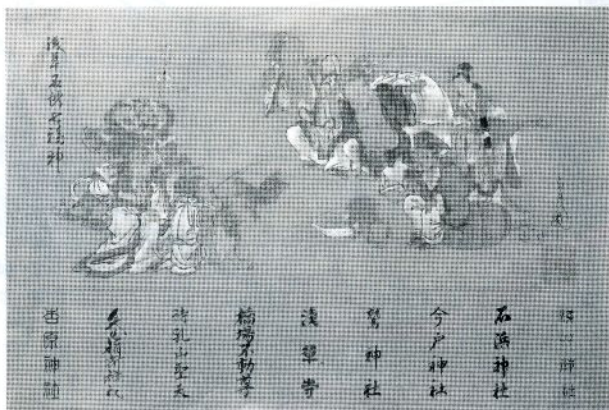 浅草名所七福神
神社
石浜神社
今戸神社
鷲神社
淺草寺
橋場不動尊
待乳山聖天
吉原神社